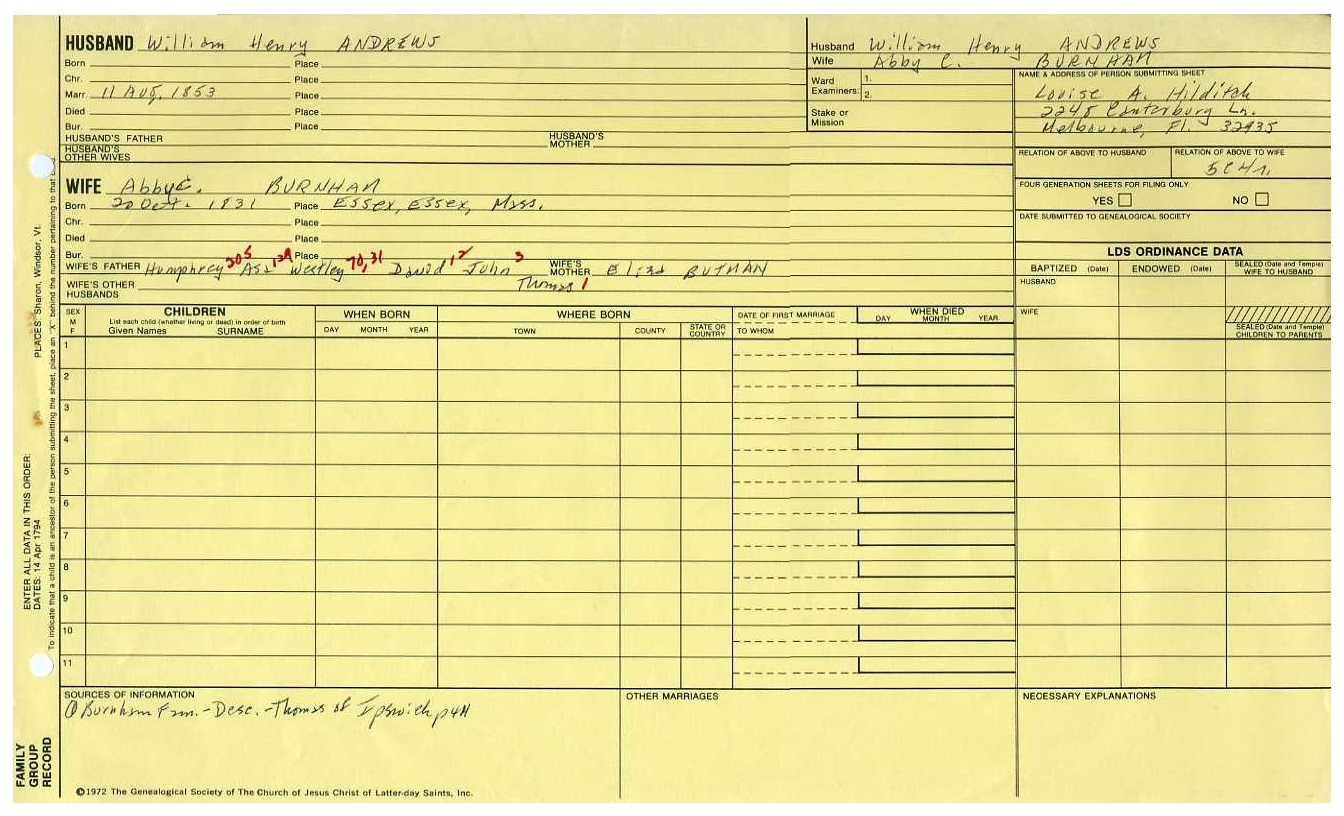 HUSBAND William Henry ANDREWS
Born Place
Chr. Place
Marr. 11 Aug, 1853 Place
Died Place
Bur. Place
HUSBAND'S FATHER HUSBAND'S MOTHER
HUSBAND'S OTHER WIVES
Husband William Henry ANDREWS
Wife Abby C. BURNHAM
Ward Examiners: 1. 2.
Stake or Mission
NAME & ADDRESS OF PERSON SUBMITTING SHEET
Louise A. Hilditch
2245 Canterbury Ln.
Melbourne, Fl. 32935
RELATION OF ABOVE TO HUSBAND RELATION OF ABOVE TO WIFE
5C4r.
FOUR GENERATION SHEETS FOR FILING ONLY
YES NO
DATE SUBMITTED TO GENEALOGICAL SOCIETY
WIFE Abby C. BURNHAM
Born 20 Oct. 1831 Place Essex, Essex, Mass.
Chr. Place
Died Place
Bur. Place
WIFE'S FATHER Humphrey 305 Asa 129 Westley 70,31 David 12 John 3 Thomas 1 WIFE'S MOTHER Eliza BUTMAN
WIFE'S OTHER HUSBANDS
LDS ORDINANCE DATA
BAPTIZED (Date) ENDOWED (Date) SEALED (Date and Temple) WIFE TO HUSBAND
HUSBAND
WIFE
SEALED (Date and Temple) CHILDREN TO PARENTS
SEX M F
CHILDREN
List each child (whether living or dead) in order of birth
Given Names SURNAME
WHEN BORN
DAY MONTH YEAR
WHERE BORN
TOWN COUNTY STATE OR COUNTRY
DATE OF FIRST MARRIAGE
TO WHOM
WHEN DIED
DAY MONTH YEAR
1
2
3
4
5
6
7
8
9
10
11
SOURCES OF INFORMATION
Burnham Fam.-Desc.-Thomas of Ipswich
OTHER MARRIAGES
NECESSARY EXPLANATIONS
©1972 The Genealogical Society of The Church of Jesus Christ of Latter-day Saints, Inc.
FAMILY GROUP RECORD
ENTER ALL DATA IN THIS ORDER:
DATES: 14 Apr 1794 PLACES: Sharon, Windsor, Vt.
To indicate that a child is an ancestor of the person submitting the sheet, place an "X" behind the number pertaining to that